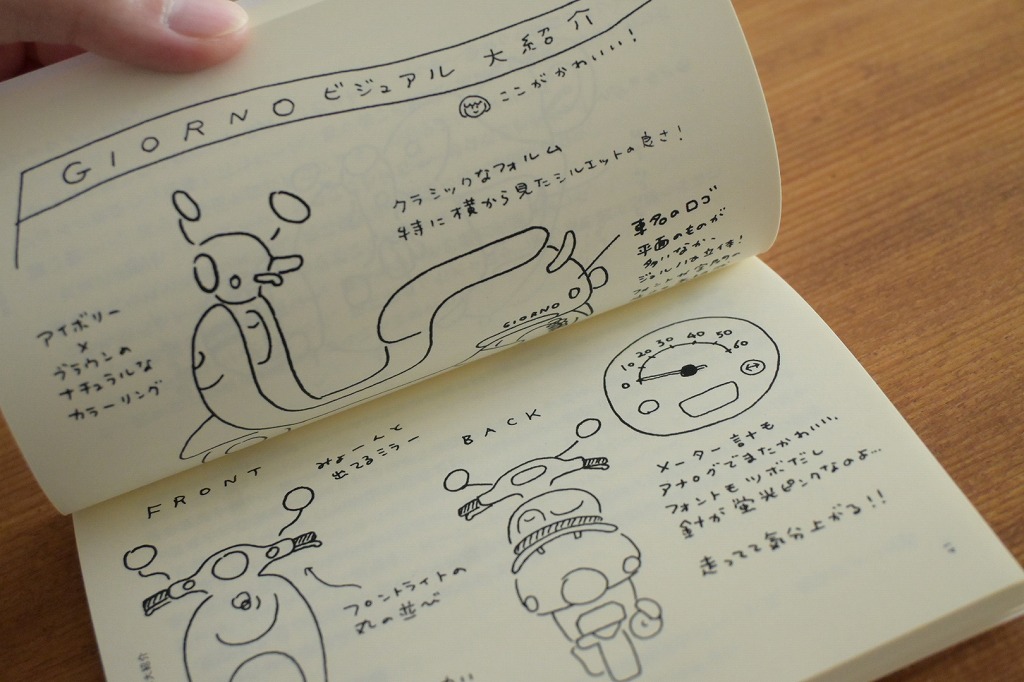 GIORNO ビジュアル 大紹介
ここがかわいい!
クラシックなフォルム
特に横から見たシルエットの良さ!
車名のロゴ
平面のものが
多いなか、
ジョルノは立体!
アイボリー
×
ブラウンの
ナチュラルな
カラーリング
GIORNO
0 10 20 30 40 50 60
FRONT
みょーんと
出てるミラー
BACK
メーター計も
アナログでまたかわいい、
フォントもツボだし
針が蛍光ピンクなのよ…
走ってて気分上がる!!
フロントライトの
丸の並べ
大紹介